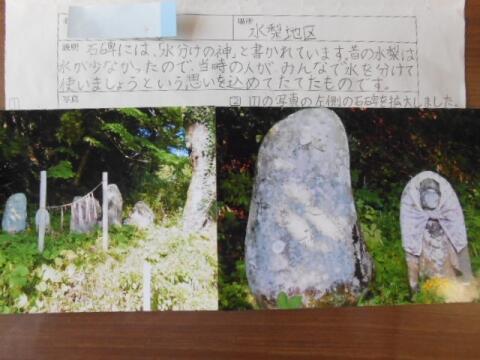 場所
水梨地区
説明 石碑には、「水分けの神」と書かれています。昔の水梨は
水が少なかったので、当時の人が、みんなで水を分けて
使いましょうという思いを込めてたてたものです。
写真
① ② ①の写真の左側の石碑を拡大しました。